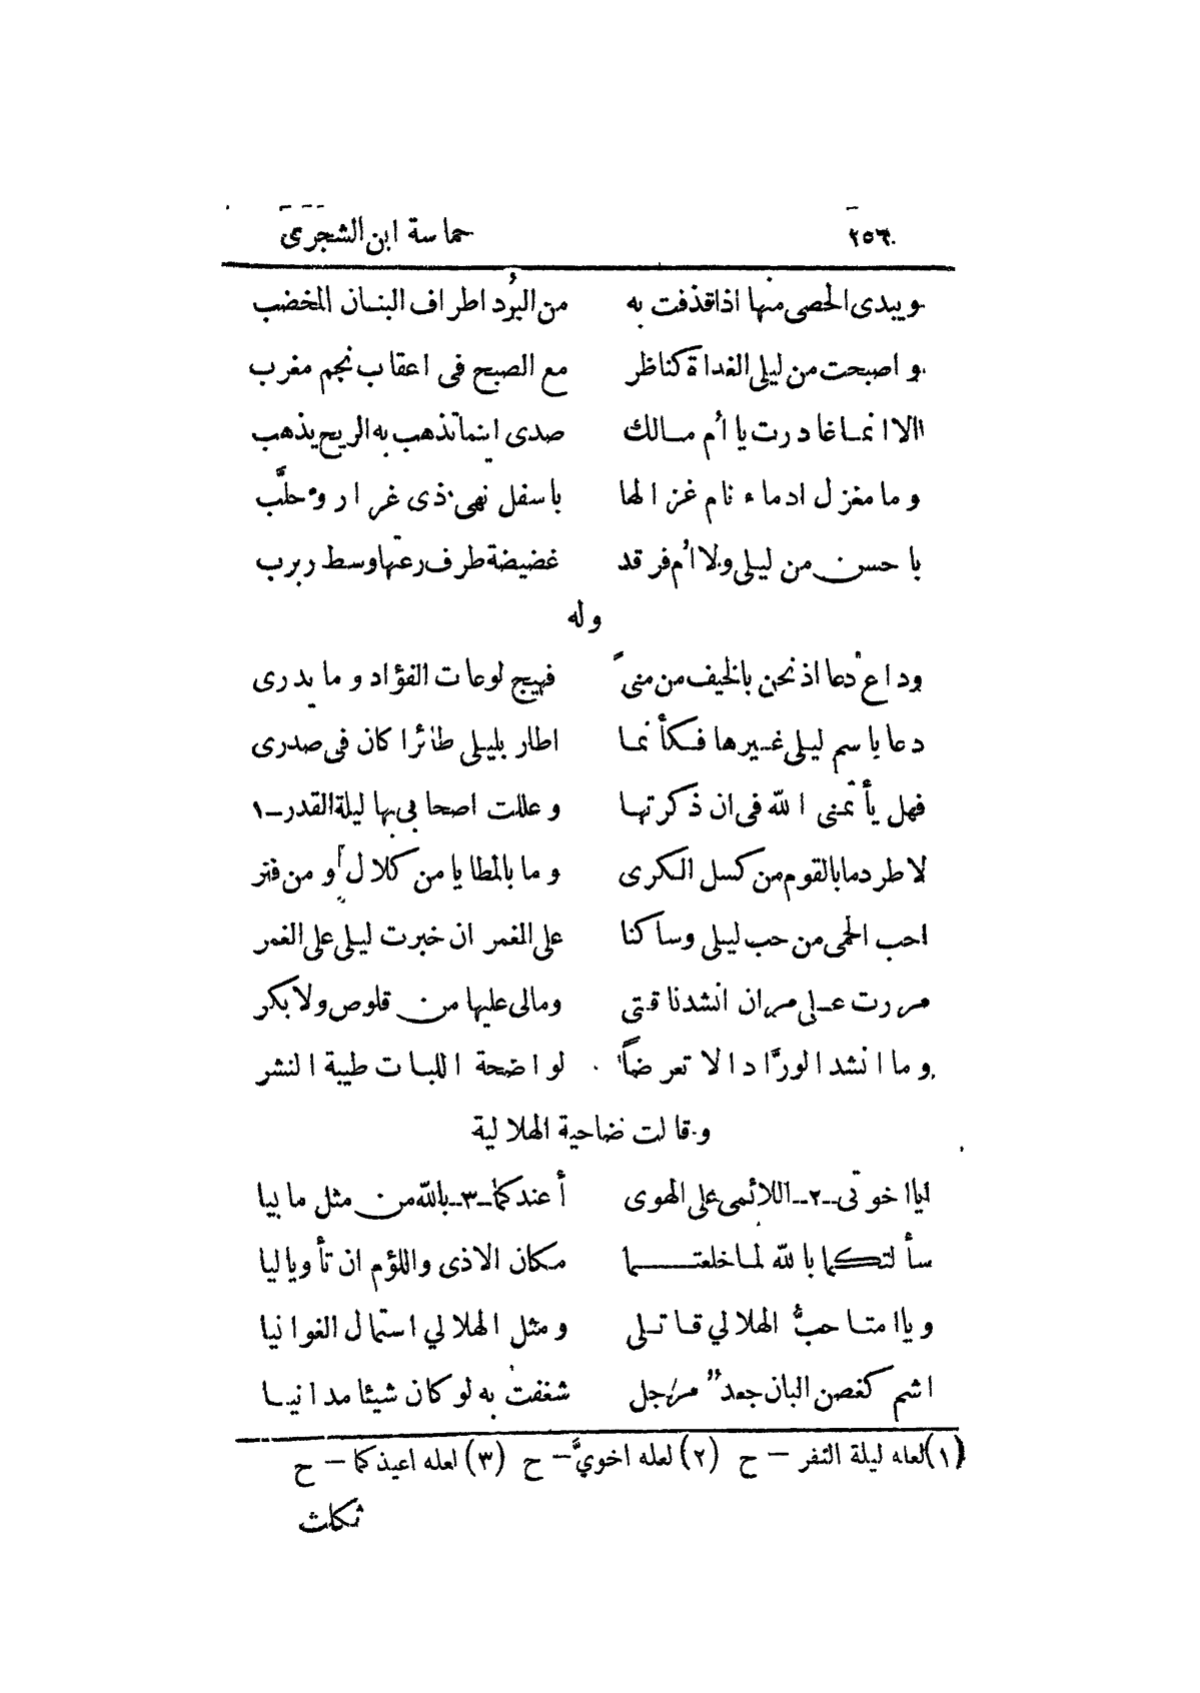 ٢٥٦ حماسة ابن الشجرى
ويبدى الحصى منها اذا قذفت به من البُرد اطراف البنان المخضب
و اصبحت من ليلى الغداة كناظر مع الصبح فى اعقاب نجم مغرب
الا انما غادرت يا أم مالك صدى اينما تذهب به الريح يذهب
و ما مغزل ادماء نام غزالها باسفل نهى ذى غرار و حلَّب
با حسن من ليلى ولا اُم فرقد غضيضة طرف رعتها وسط ربرب
و له
وداع دعا اذ نحن بالخيف من منىً فهيج لوعات الفؤاد و ما يدرى
دعا باسم ليلى غيرها فكأنما اطار بليلى طائرا كان فى صدرى
فهل يأثمنى الله فى ان ذكرتها و عللت اصحابى بها ليلة القدر ـ ١
لاطرد ما بالقوم من كسل الكرى و ما بالمطايا من كلال أو من فتر
احب الحمى من حب ليلى وساكنا على الغمر ان خبرت ليلى على الغمر
مررت على مران انشد ناقتى ومالى عليها من قلوص ولا بكر
و ما انشد الورَّاد الا تعرضاً لواضحة اللبات طيبة النشر
و قالت ضاحية الهلالية
ايا اخوتى ـ ٢ ـ اللائمى على الهوى أعندكما ـ ٣ ـ بالله من مثل ما بيا
سألتكما بالله لما خلعتما مكان الاذى واللؤم ان تأويا ليا
و ياا متا حبُّ الهلالي قاتلى و مثل الهلالي استمال الغوانيا
اشم كغصن البان جعدٌ مرجل شغفت به لو كان شيئا مدانيا
(١) لعله ليلة النفر – ح (٢) لعله اخويَّ – ح (٣) لعله اعيذكما – ح
ثكلت